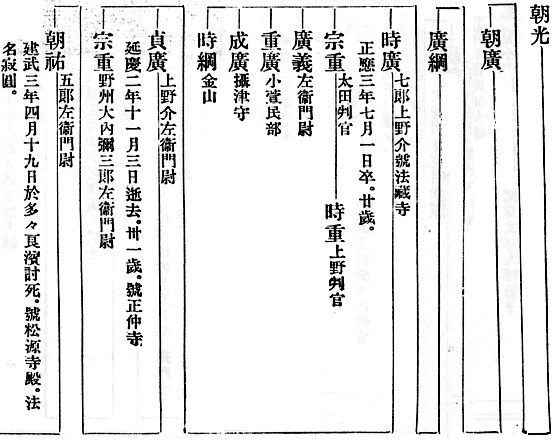 朝光
朝廣
廣綱
時廣 七郎上野介號法藏寺
正應三年七月一日卒。廿歲。
宗重 太田判官
時重 上野判官
廣義 左衞門尉
重廣 小萱民部
成廣 攝津守
時綱 金山
貞廣 上野介左衞門尉
延慶二年十一月三日逝去。卅一歲。號正仲寺
宗重 野州大內彌三郎左衞門尉
朝祐 五郎左衞門尉
建武三年四月十九日於多々良濱討死。號松源寺殿。法
名寂圓。